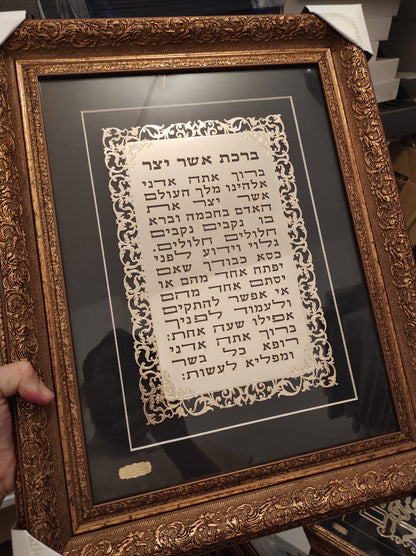 ברכת אשר יצר
ברוך אתה אדני
אלהינו מלך העולם
אשר יצר את
האדם בחכמה וברא
בו נקבים נקבים
חלולים חלולים.
גלוי וידוע לפני
כסא כבודך שאם
יפתח אחד מהם או
יסתם אחד מהם
אי אפשר להתקים
ולעמוד לפניך
אפילו שעה אחת:
ברוך אתה אדני
רופא כל בשר
ומפליא לעשות: